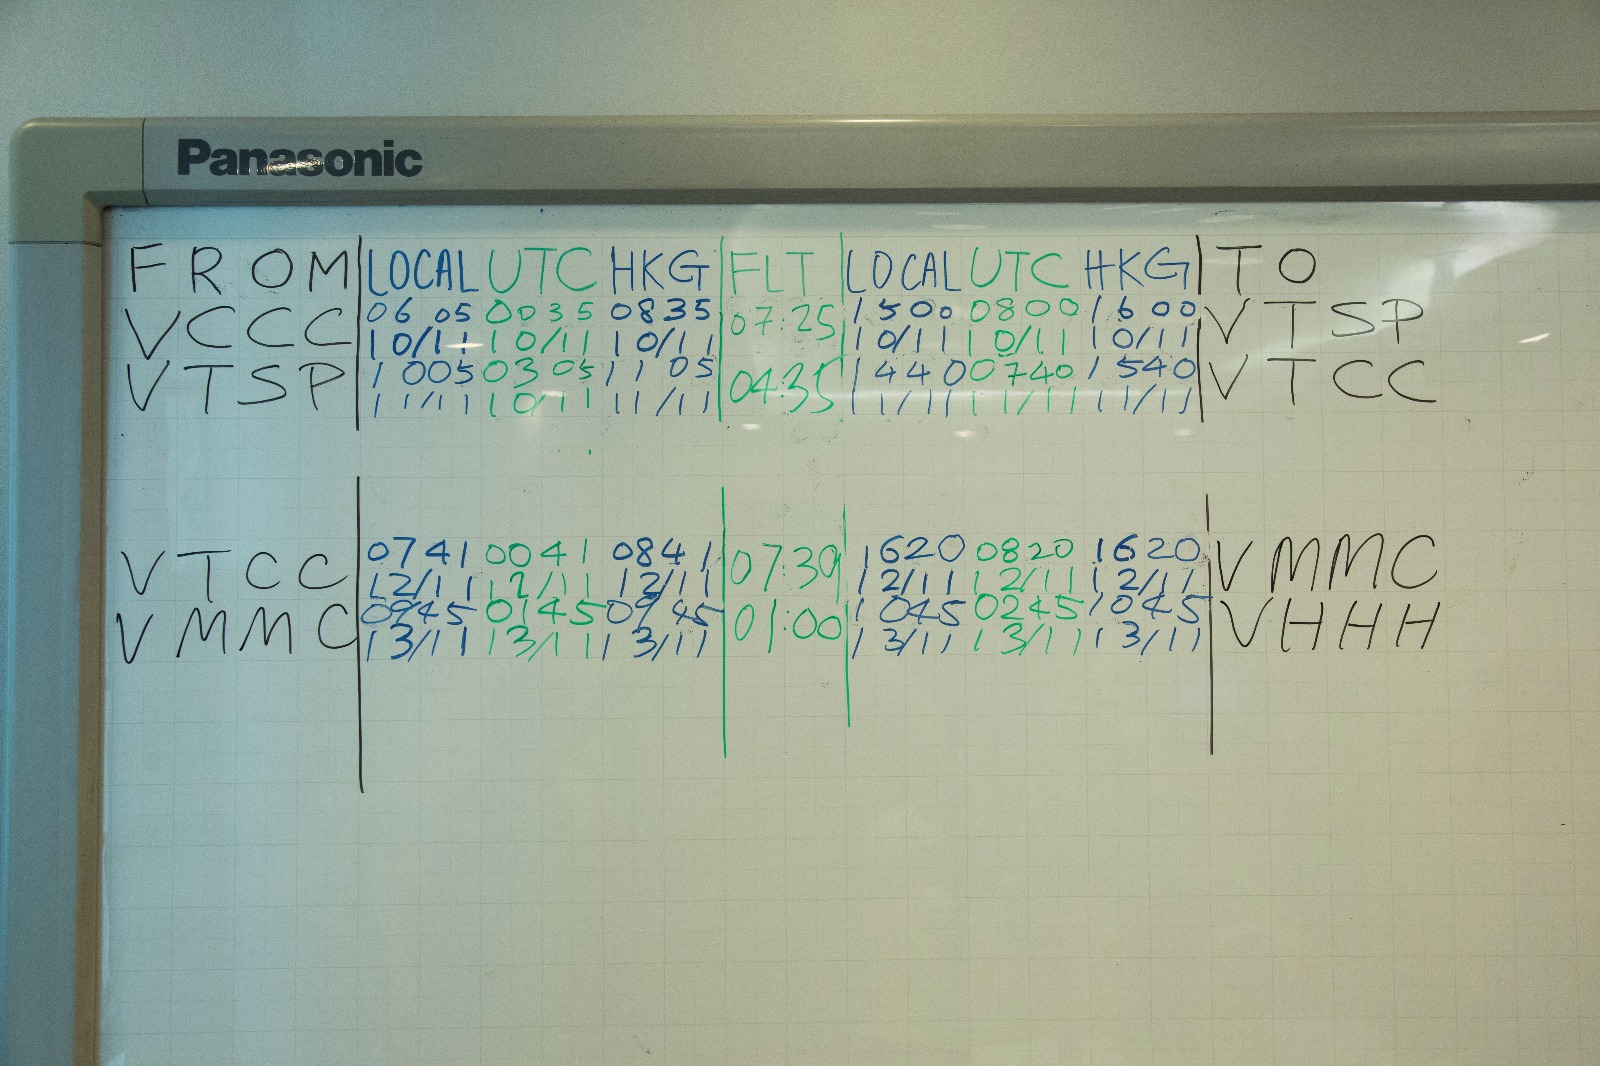 Panasonic
FROM LOCAL UTC HKG FLT LOCAL UTC HKG TO
VCCC 0605 0035 0835 07:25 1500 0800 1600 VTSP
10/11 10/11 10/11 10/11 10/11 10/11
VTSP 1005 0305 1105 04:35 1440 0740 1540 VTCC
11/11 10/11 11/11 11/11 11/11 11/11
VTCC 0741 0041 0841 07:39 1620 0820 1620 VMMC
12/11 12/11 12/11 12/11 12/11 12/11
VMMC 0945 0145 0945 01:00 1045 0245 1045 VHHH
13/11 13/11 13/11 13/11 13/11 13/11